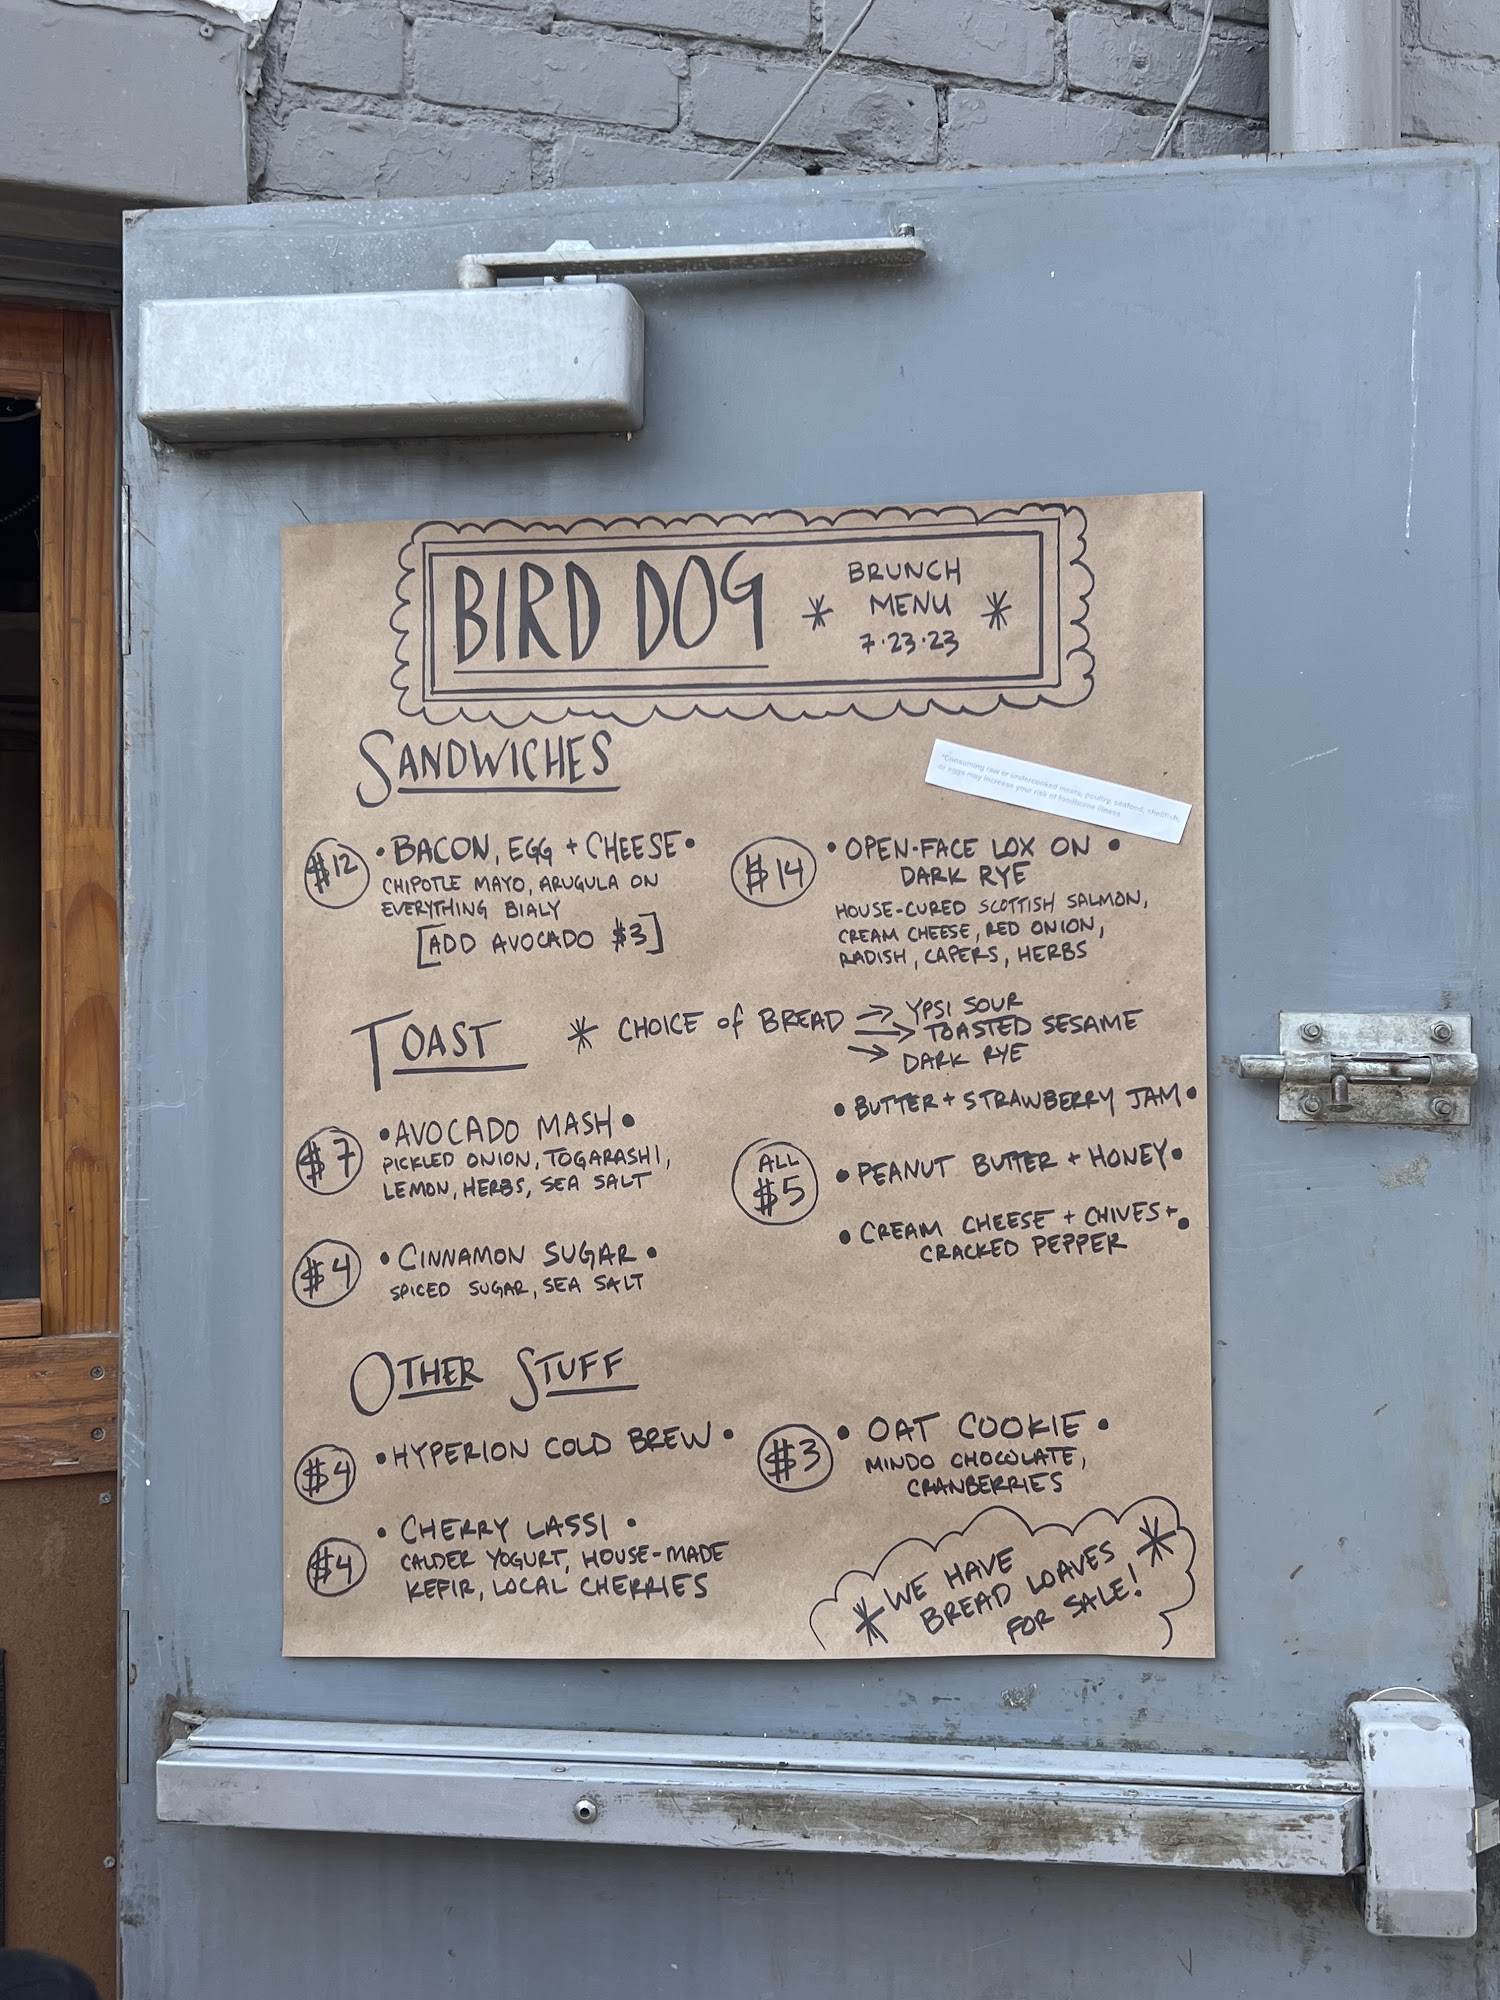 BIRD DOG
BRUNCH
MENU
7·23·23
SANDWICHES
*Consuming raw or undercooked meats, poultry, seafood, shellfish,
or eggs may increase your risk of foodborne illness
$12
• BACON, EGG + CHEESE •
CHIPOTLE MAYO, ARUGULA ON
EVERYTHING BIALY
[ADD AVOCADO $3]
$14
• OPEN-FACE LOX ON •
DARK RYE
HOUSE-CURED SCOTTISH SALMON,
CREAM CHEESE, RED ONION,
RADISH, CAPERS, HERBS
TOAST
* CHOICE of BREAD → YPSI SOUR
→ TOASTED SESAME
→ DARK RYE
$7
• AVOCADO MASH •
PICKLED ONION, TOGARASHI,
LEMON, HERBS, SEA SALT
$4
• CINNAMON SUGAR •
SPICED SUGAR, SEA SALT
ALL
$5
• BUTTER + STRAWBERRY JAM •
• PEANUT BUTTER + HONEY •
• CREAM CHEESE + CHIVES + •
CRACKED PEPPER
OTHER STUFF
$4
• HYPERION COLD BREW •
$4
• CHERRY LASSI •
CALDER YOGURT, HOUSE-MADE
KEFIR, LOCAL CHERRIES
$3
• OAT COOKIE •
MINDO CHOCOLATE,
CRANBERRIES
* WE HAVE
BREAD LOAVES *
FOR SALE!